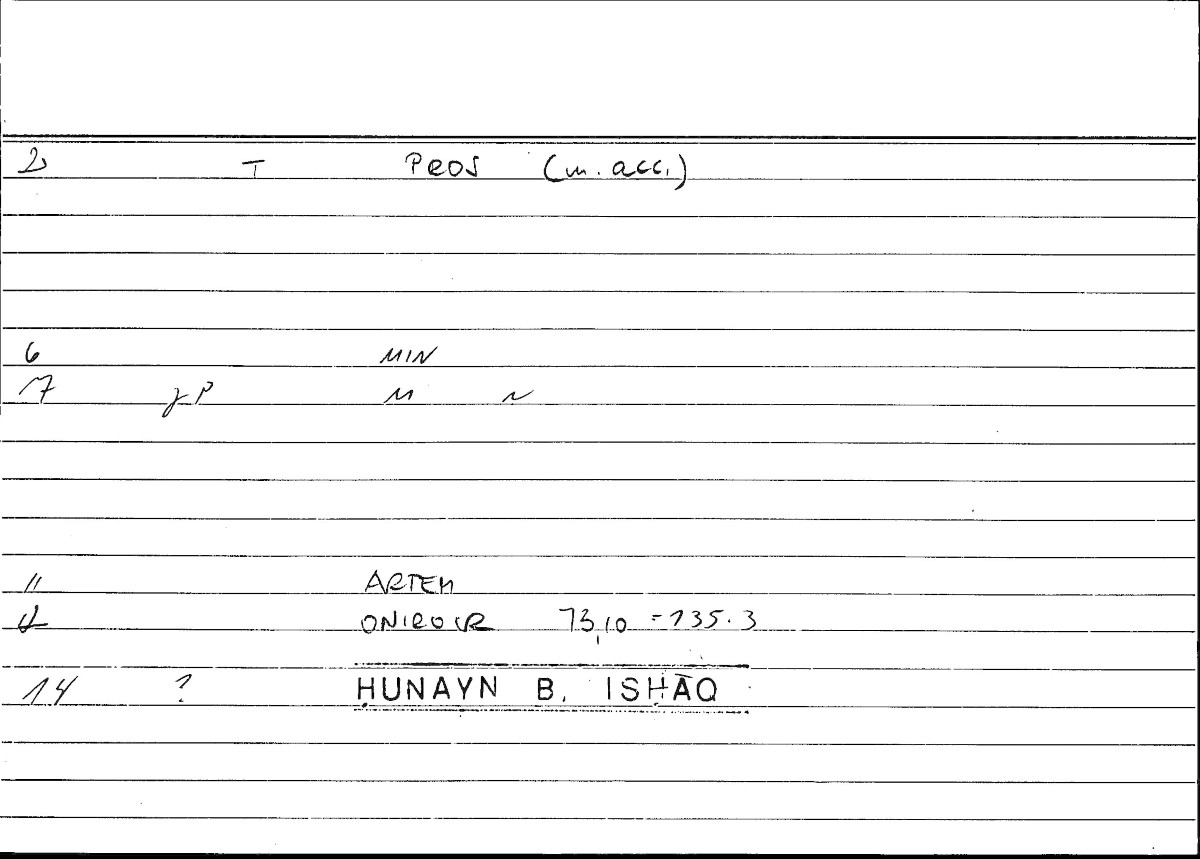 2 T PROS (m. acc.)
6 MIN
7 γP M N
11 ARTEM
ONIROCR 73,10 = 135.3
14 ? ḤUNAYN B. ISḤĀQ